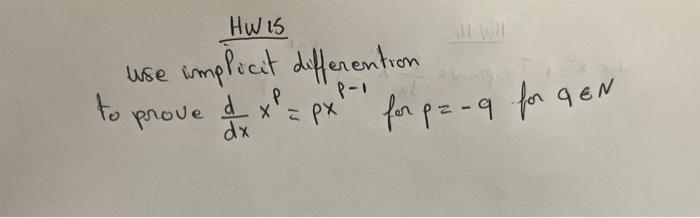 HW 15
use implicit differention
to prove d/dx x^p = px^p-1 for p = -q for q ∈ N